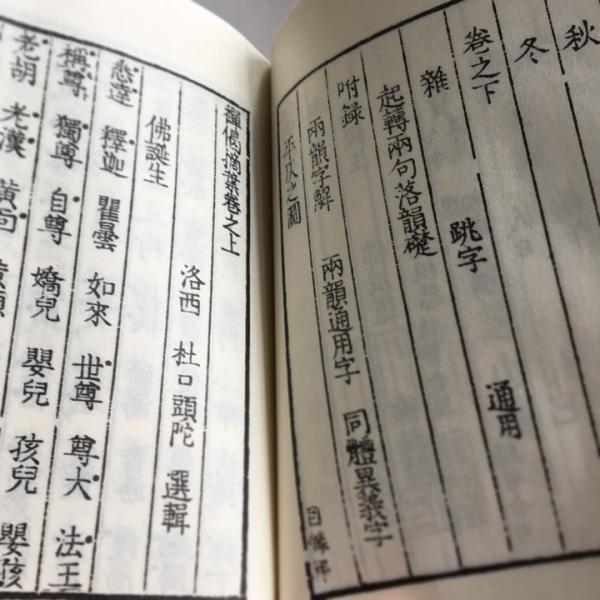 秋
冬
卷之下
雜 跳字 通用
起轉兩句落韻礎
附録
兩韻字解 兩韻通用字 同體異義字
平仄之圖
目録畢
禪偈摘葉卷之上
洛西 杜口頭陀 選輯
佛誕生
悉達 釋迦 瞿曇 如來 世尊 尊大 法王
稱尊 獨尊 自尊 嬌兒 嬰兒 孩兒 嬰孩
老胡 老漢 黃面